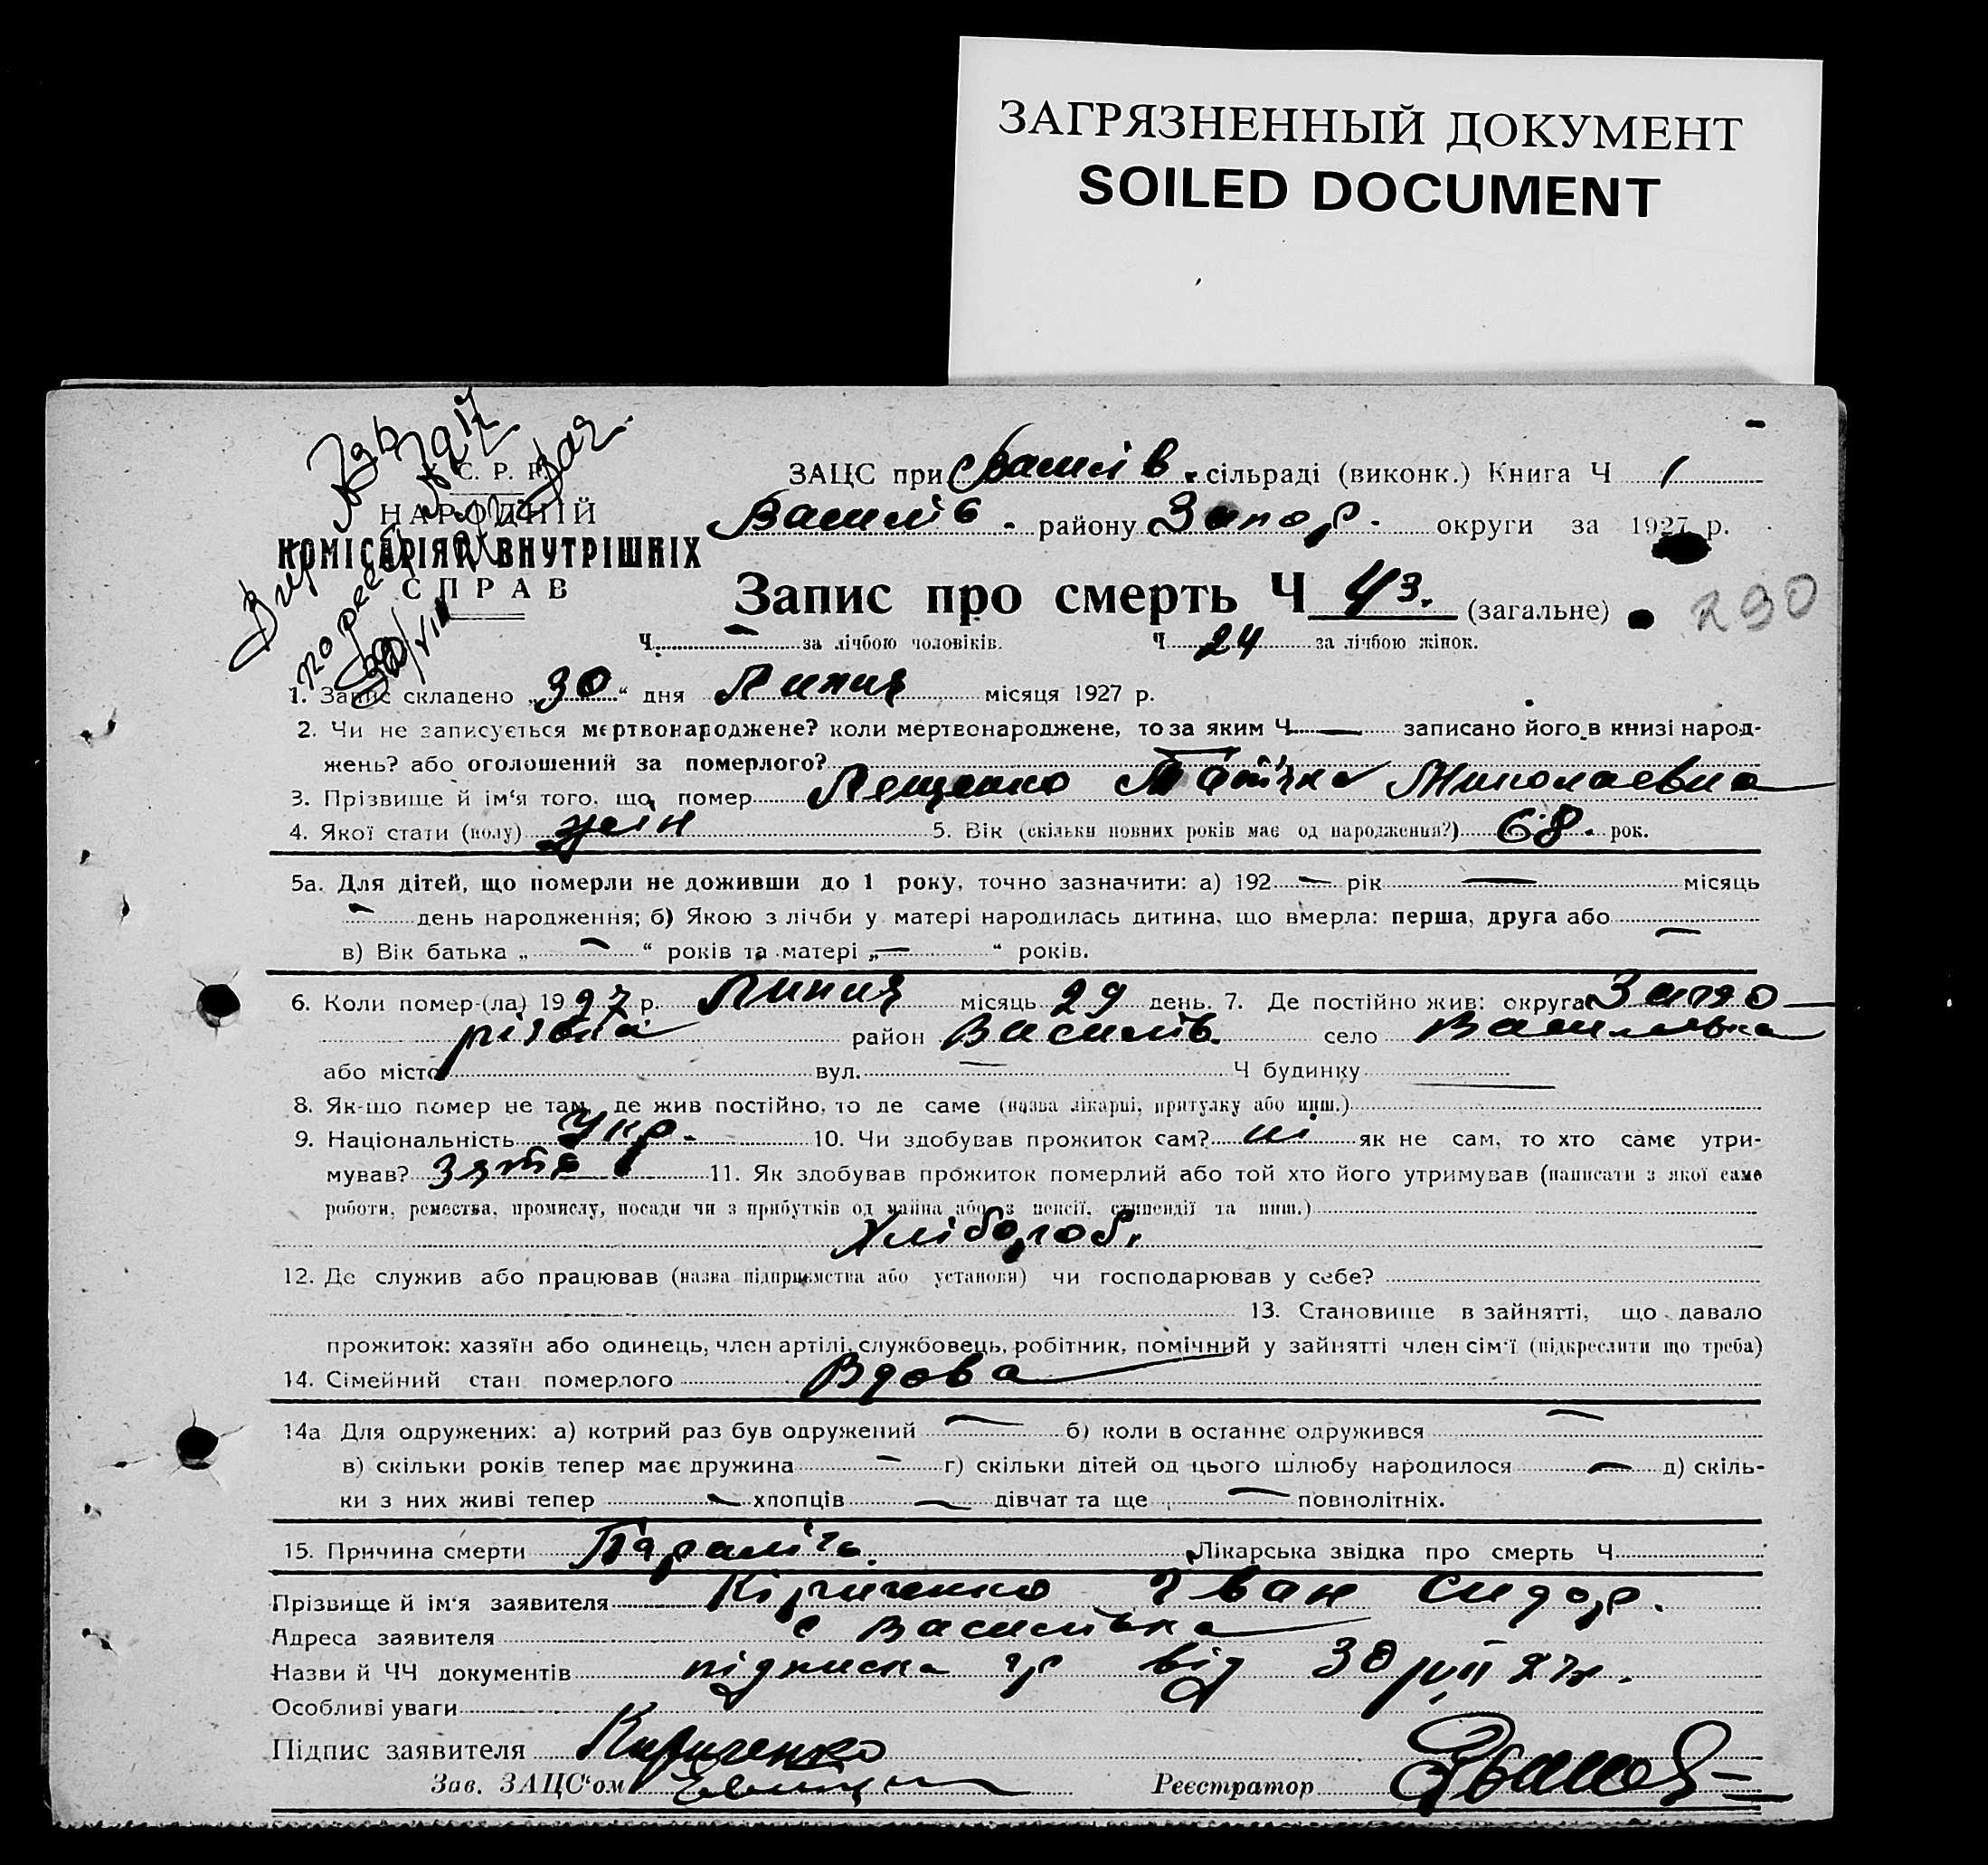 ЗАГРЯЗНЕННЫЙ ДОКУМЕНТ
SOILED DOCUMENT
С. Р. Р.
НАРОДНІЙ
КОМІСАРІЯТ ВНУТРІШНІХ
СПРАВ
ЗАЦС при Василів. сільраді (виконк.) Книга Ч 1
Василів. району Запор. округи за 1927 р.
Запис про смерть Ч 43. (загальне)
290
Ч — за лічбою чоловіків. Ч 24 за лічбою жінок.
1. Запис складено „30“ дня Липня місяця 1927 р.
2. Чи не записується мертвонароджене? коли мертвонароджене, то за яким Ч — записано його в книзі народ-
жень? або оголошений за померлого? —
3. Прізвище й ім‘я того, що помер Лещенко Тетяна Миколаевна
4. Якої стати (полу) жін 5. Вік (скільки повних років має од народження?) 68. рок.
5а. Для дітей, що померли не доживши до 1 року, точно зазначити: а) 192 — рік — місяць
— день народження; б) Якою з лічби у матері народилась дитина, що вмерла: перша, друга або —
в) Вік батька „ — “ років та матері „ — “ років.
6. Коли помер-(ла) 1927 р. Липня місяць 29 день. 7. Де постійно жив: округа Запо-
різька район Василів. село Василівка
або місто вул. — Ч будинку —
8. Як-що помер не там, де жив постійно, то де саме (назва лікарні, притулку або инш.)
9. Національність Укр. 10. Чи здобував прожиток сам? ні як не сам, то хто саме утри-
мував? зять 11. Як здобував прожиток померлий або той хто його утримував (написати з якої саме
роботи, ремества, промислу, посади чи з прибутків од майна або з пенсії, стипендії та инш.)
Хлібороб.
12. Де служив або працював (назва підприємства або установи) чи господарював у себе?
13. Становище в зайнятті, що давало
прожиток: хазяїн або одинець, член артілі, службовець, робітник, помічний у зайнятті член сім‘ї (підкреслити що треба)
14. Сімейний стан померлого Вдова
14а Для одружених: а) котрий раз був одружений — б) коли в останнє одружився —
в) скільки років тепер має дружина — г) скільки дітей од цього шлюбу народилося — д) скіль-
ки з них живі тепер — хлопців — дівчат та ще — повнолітніх.
15. Причина смерти Параліч. Лікарська звідка про смерть Ч
Прізвище й ім‘я заявителя Кіриченко Іван Сидор.
Адреса заявителя с Василівка
Назви й ЧЧ документів підписка від 30/VII 27р.
Особливі уваги
Підпис заявителя Кириченко
Зав. ЗАЦС‘ом Реєстратор